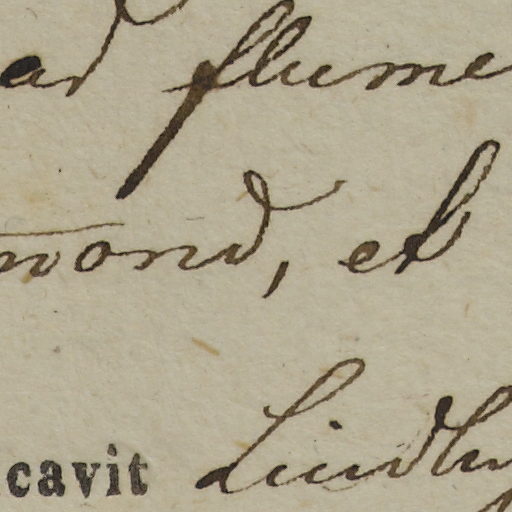 ad flume
mond, et
cavit Lindley